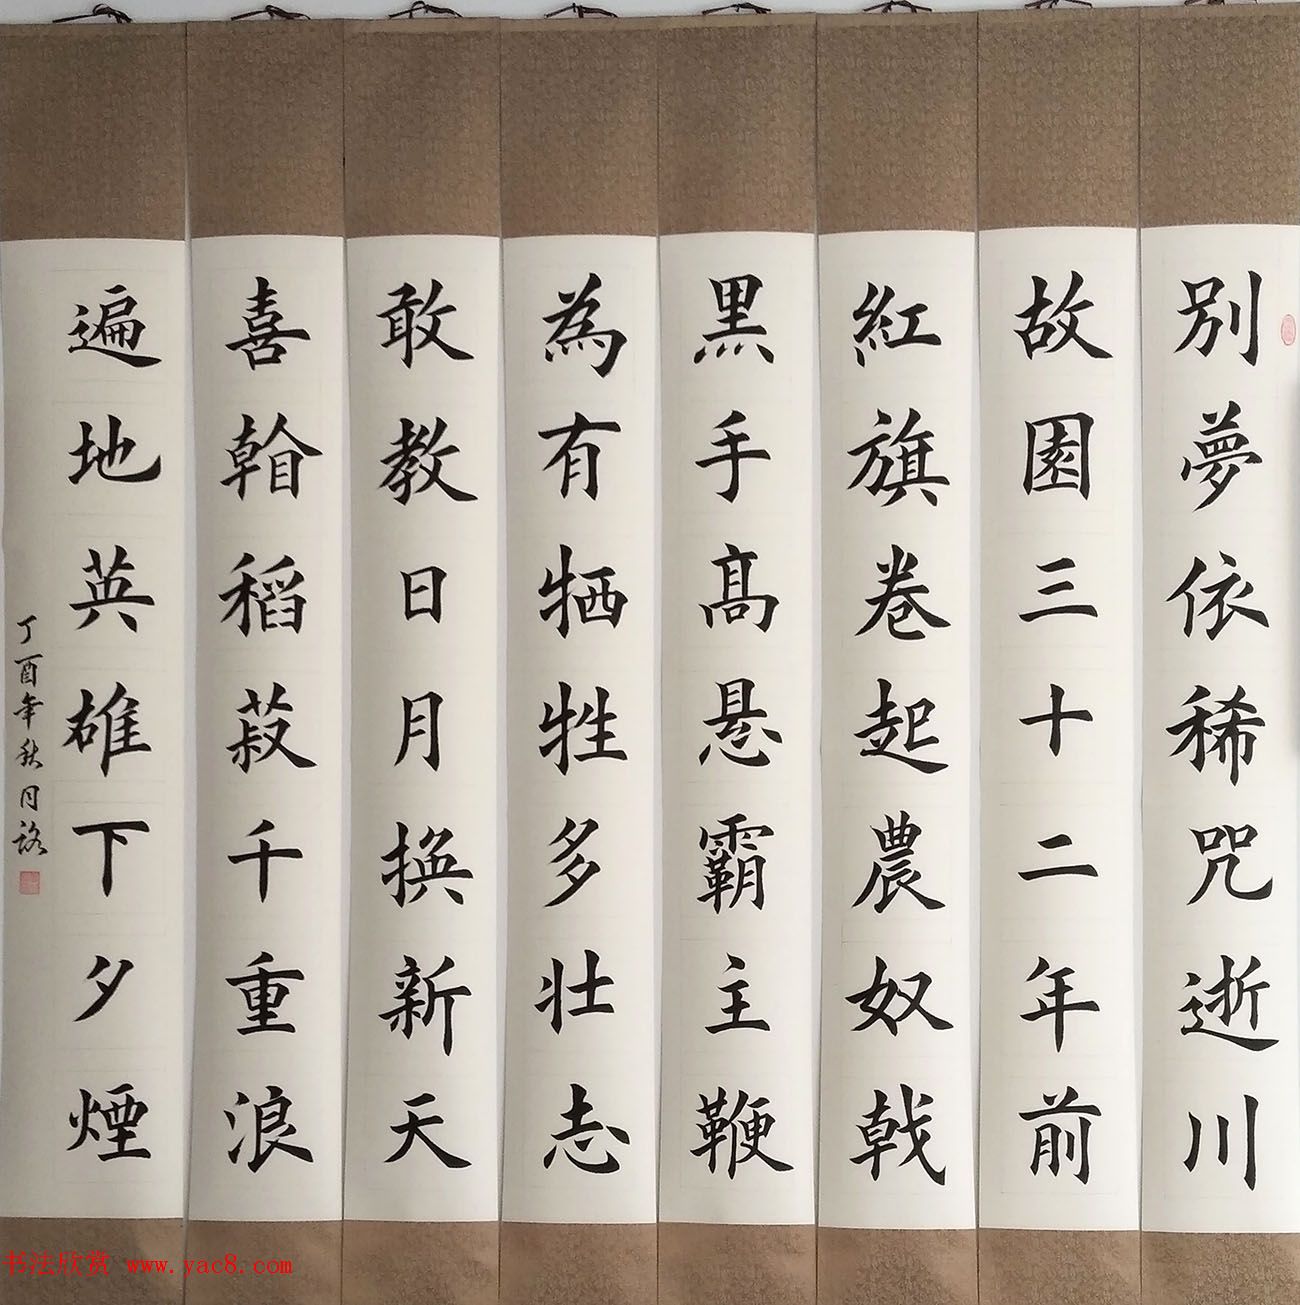 別夢依稀咒逝川
故園三十二年前
紅旗卷起農奴戟
黑手高悬霸主鞭
為有牺牲多壮志
敢教日月換新天
喜㫪稻菽千重浪
遍地英雄下夕煙
丁酉年秋月詺
书法欣赏 www.yac8.com